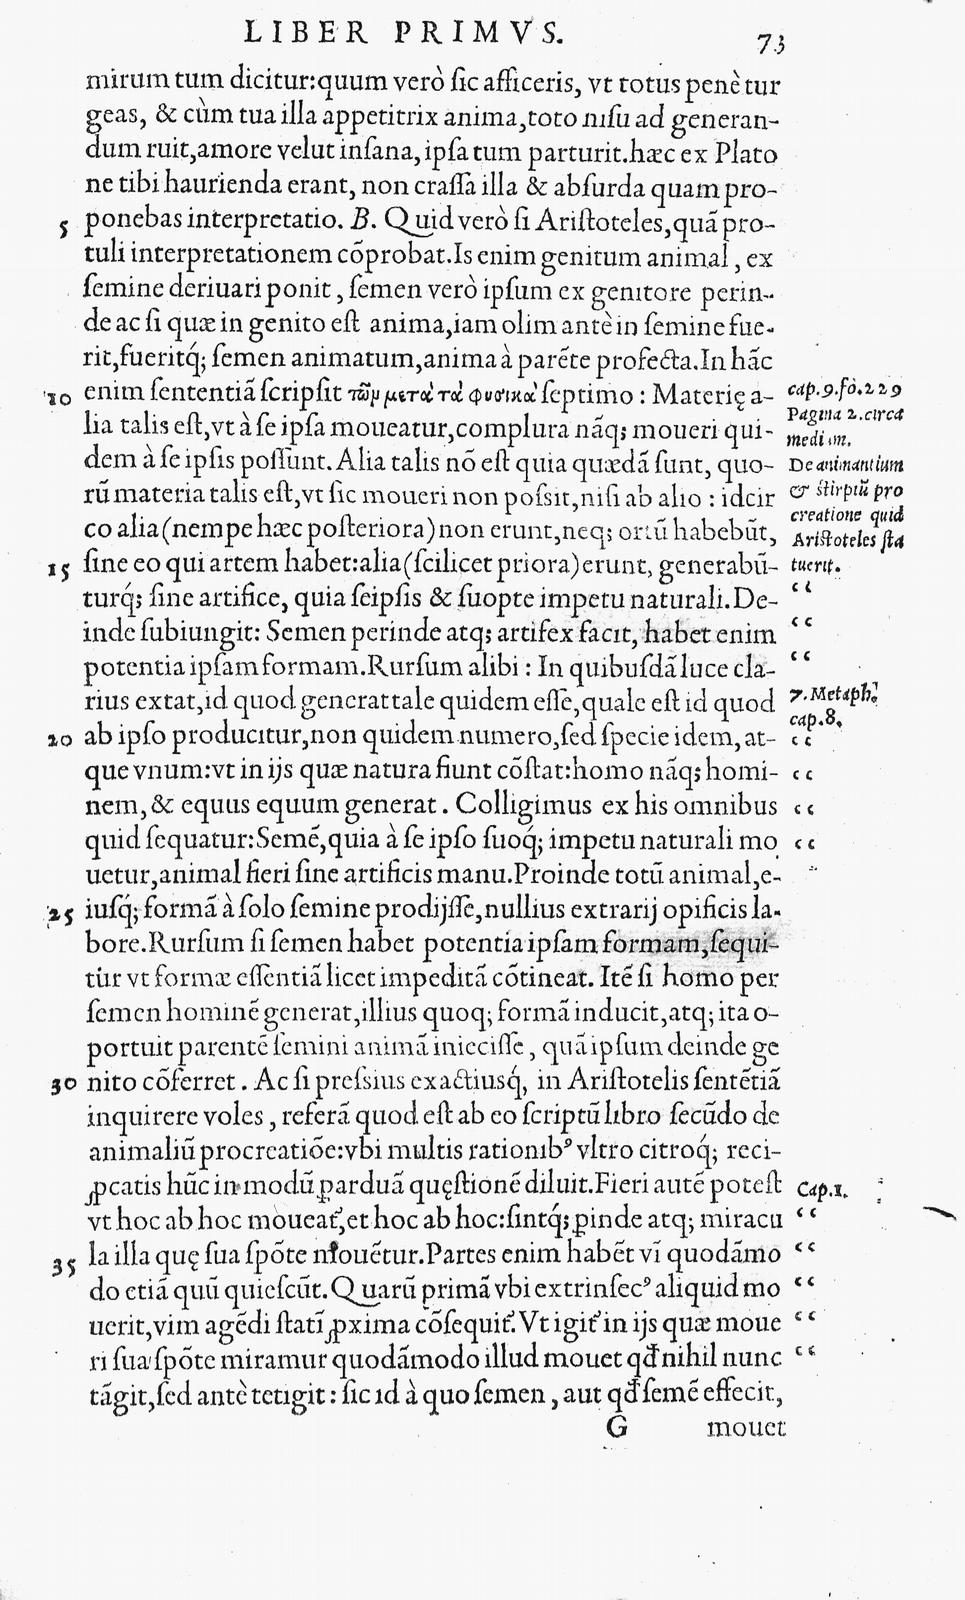 LIBER PRIMVS.
73
mirum tum dicitur:quum verò ſic afficeris, vt totus penè tur
geas, & cùm tua illa appetitrix anima,toto niſu ad generan-
dum ruit,amore velut inſana, ipſa tum parturit.hæc ex Plato
ne tibi haurienda erant, non craſſa illa & abſurda quam pro-
5 ponebas interpretatio. B. Quid verò ſi Ariſtoteles,quã pro-
tuli interpretationem cõprobat.Is enim genitum animal, ex
ſemine deriuari ponit, ſemen verò ipſum ex genitore perin-
de ac ſi quæ in genito eſt anima,iam olim antè in ſemine fue-
rit,fueritq́; ſemen animatum,anima à parẽte profecta.In hãc
10 enim ſententiã ſcripſit τῶμ μετὰ τὰ φυσικὰ ſeptimo: Materię a-
cap.9.fo.229
lia talis eſt,vt à ſe ipſa moueatur,complura nãq; moueri qui-
Pagina 2.circa
medium.
dem à ſe ipſis poſſunt. Alia talis nõ eſt quia quædã ſunt, quo-
De animantium
rũ materia talis eſt,vt ſic moueri non poſsit,niſi ab alio: idcir
& ſtirpiũ pro
creatione quid
co alia(nempe hæc poſteriora)non erunt,neq; ortũ habebũt,
Ariſtoteles ſta
15 ſine eo qui artem habet:alia(ſcilicet priora)erunt, generabũ-
tuerit.
turq́; ſine artifice, quia ſeipſis & ſuopte impetu naturali.De-
“
inde ſubiungit: Semen perinde atq; artifex facit, habet enim
“
potentia ipſam formam.Rurſum alibi: In quibuſdã luce cla-
“
rius extat,id quod generat tale quidem eſſe,quale eſt id quod
7.Metaph.
cap.8.
20 ab ipſo producitur,non quidem numero,ſed ſpecie idem, at-
“
que vnum:vt in ijs quæ natura fiunt cõſtat:homo nãq; homi-
“
nem, & equus equum generat. Colligimus ex his omnibus
“
quid ſequatur:Semẽ,quia à ſe ipſo ſuoq́; impetu naturali mo
“
uetur,animal fieri ſine artificis manu.Proinde totũ animal,e-
25 iuſq́; formã à ſolo ſemine prodijſſe,nullius extrarij opificis la-
bore.Rurſum ſi ſemen habet potentia ipſam formam,ſequi-
tur vt formæ eſſentiã licet impeditã cõtineat. Itẽ ſi homo per
ſemen hominẽ generat,illius quoq; formã inducit,atq; ita o-
portuit parentẽ ſemini animã inieciſſe, quã ipſum deinde ge
30 nito cõferret. Ac ſi preſsius exactiusq́, in Ariſtotelis ſentẽtiã
inquirere voles, referã quod eſt ab eo ſcriptũ libro ſecũdo de
animaliũ procreatiõe:vbi multis rationibꝰ vltro citroq́; reci-
ꝓcatis hũc in modũ ꝑarduã quęſtionẽ diluit.Fieri autẽ poteſt
Cap.1.
vt hoc ab hoc moueat᷑,et hoc ab hoc:ſintq́; ꝑinde atq; miracu
“
35 la illa quę ſua ſpõte mouẽtur.Partes enim habẽt vĩ quodãmo
“
do etiã quũ quieſcũt.Quarũ primã vbi extrinſecꝰ aliquid mo
“
uerit,vim agẽdi ſtatĩ ꝓxima cõſequit᷑.Vt igit᷑ in ijs quæ moue
“
ri ſua ſpõte miramur quodãmodo illud mouet qđ nihil nunc
“
tãgit,ſed antè tetigit: ſic id à quo ſemen, aut qđ ſemẽ effecit,
G
mouet